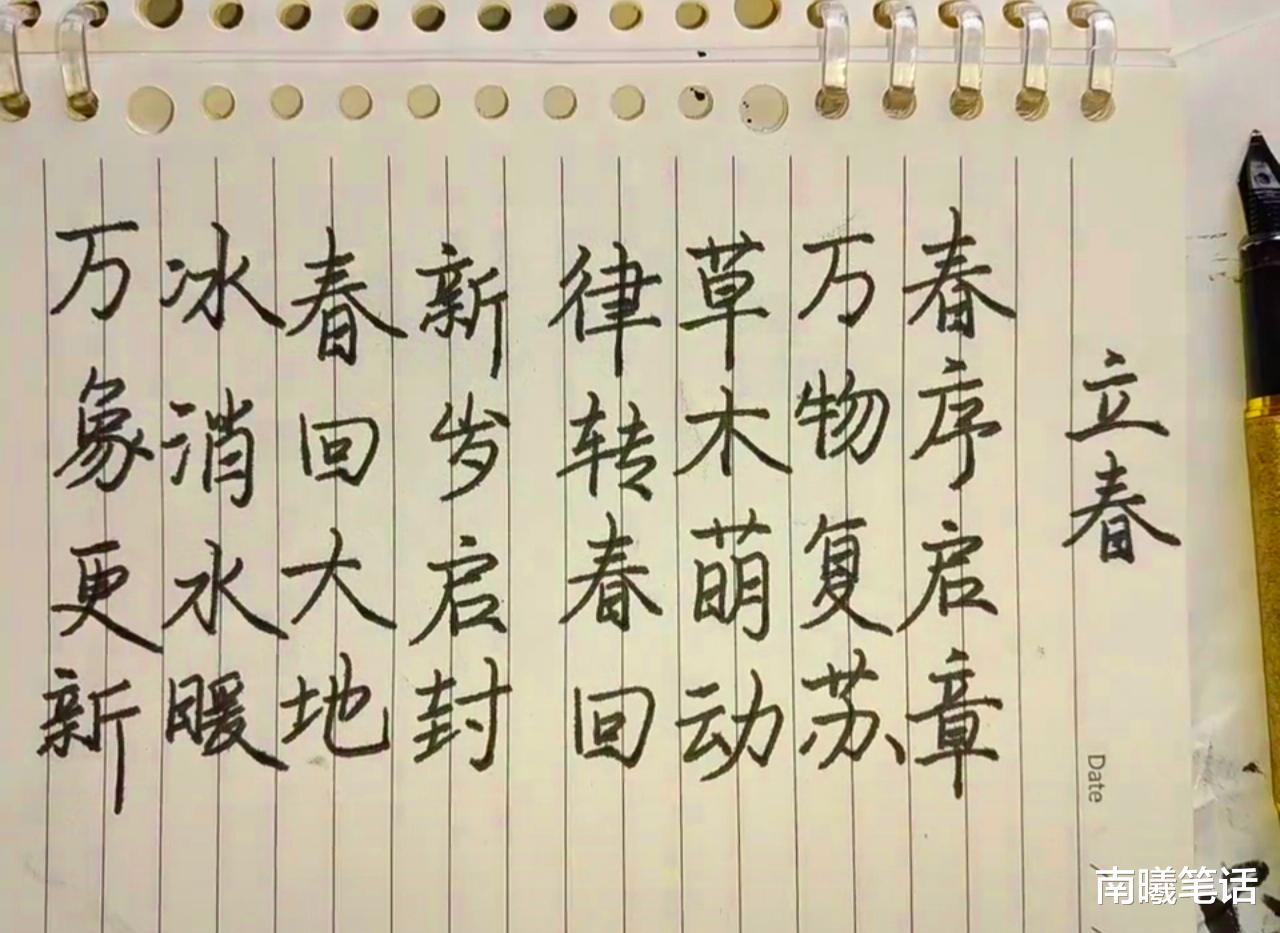 立春
春序启章
万物复苏
草木萌动
律转春回
新岁启封
春回大地
冰消水暖
万象更新
Date
南曦笔话